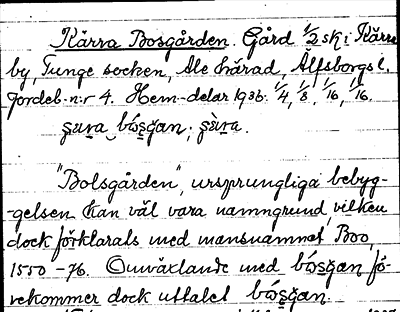 Kärra Bosgården. Gård 1/2 sk i Kärra
by, Tunge socken, Ale härad, Älfsborgs l.
Jordeb. n:r 4. Hem-delar 1936. 1/4, 1/8, 1/16, 1/16.
"Bolsgården", ursprungliga bebyg-
-gelsen kan väl vara namngrund, vilken
dock förklarats med mansnamnet Boo,
1550-76. Omväxlande med fö-
rekommer dock uttalet